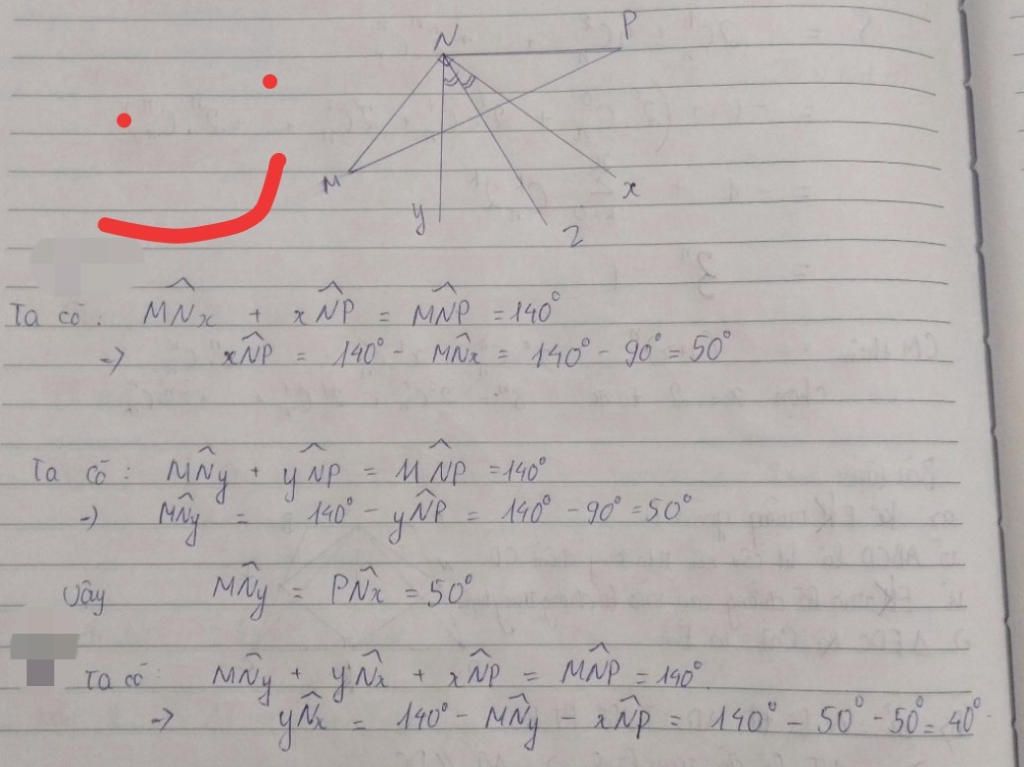 N
P
M
y
z
x
Ta có: MN̂x + xN̂P = MN̂P = 140°
=> xN̂P = 140° - MN̂x = 140° - 90° = 50°
Ta có: MN̂y + yN̂P = MN̂P = 140°
-) MN̂y = 140° - yN̂P = 140° - 90° = 50°
Vậy MN̂y = PN̂x = 50°
Ta có: MN̂y + yN̂x + xN̂P = MN̂P = 140°
=> yN̂x = 140° - MN̂y - xN̂P = 140° - 50° - 50° = 40°.